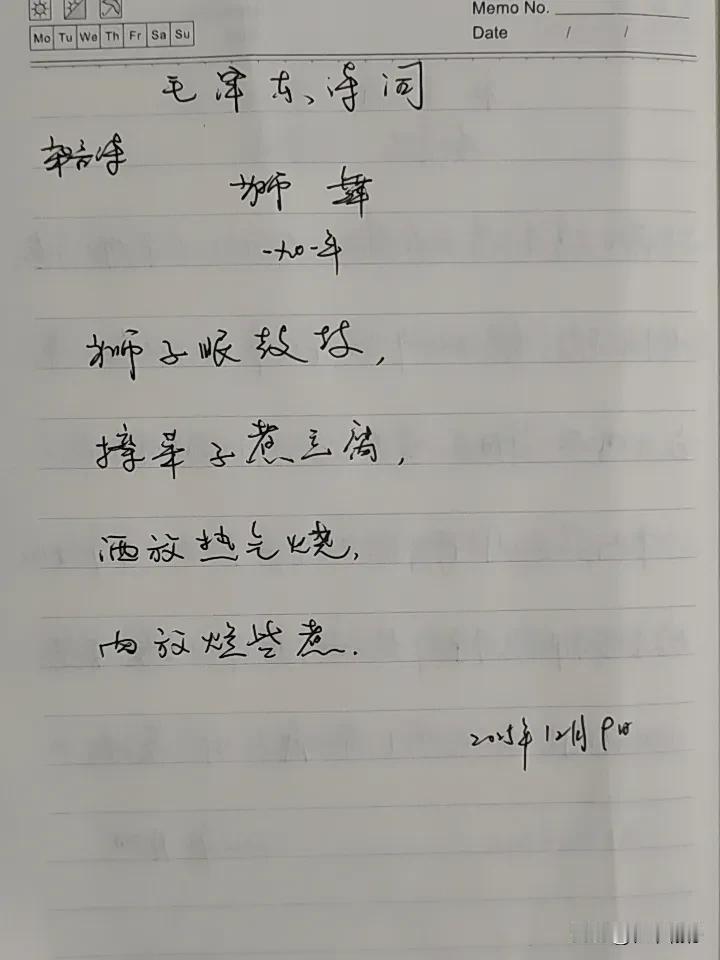 Memo No.
Mo Tu We Th Fr Sa Su
Date / /
毛泽东诗词
杂言诗
狮舞
一九〇一年
狮子眼鼓鼓,
擦菜子煮豆腐,
酒放热气烧,
肉放烂些煮.
2025年12月9日